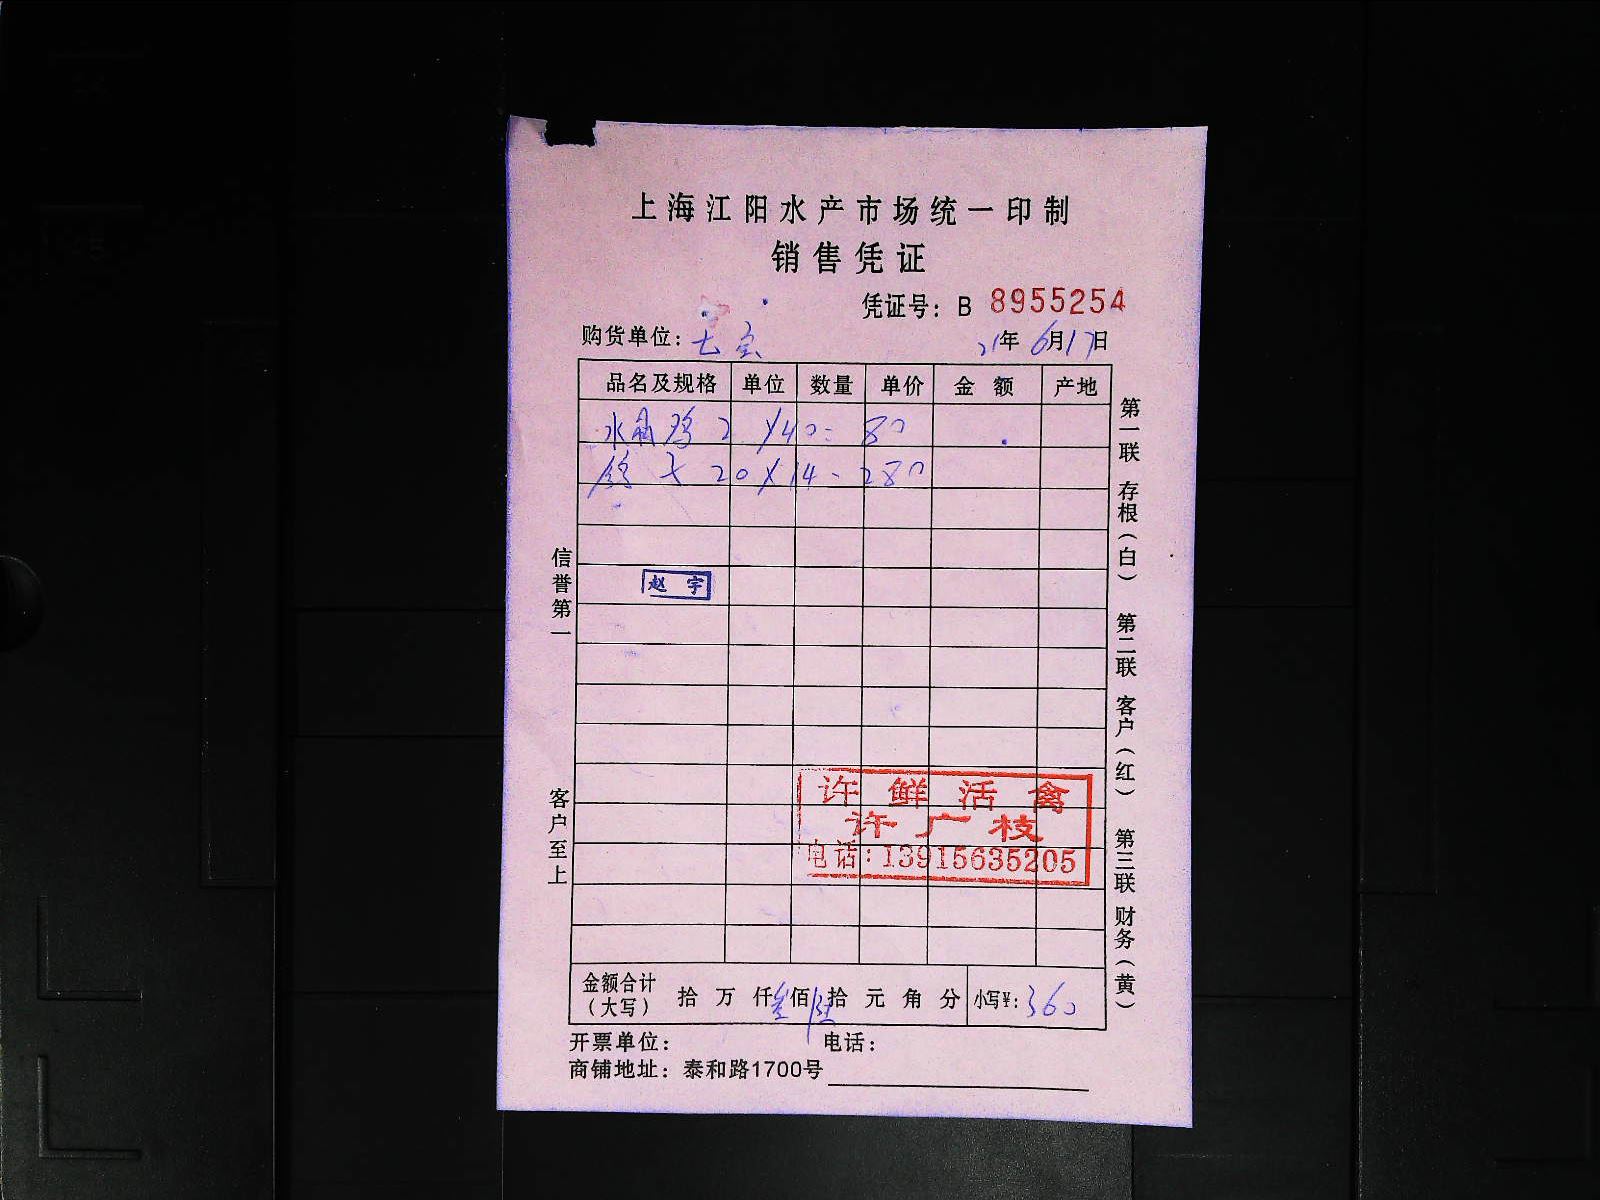 上海江阳水产市场统一印制
销售凭证
凭证号：B 8955254
购货单位：七宝
21年6月17日
品名及规格 单位 数量 单价 金额 产地
水 鸡 2 ×40= 80
20×14= 280
赵宇
信誉第一
客户至上
第一联 存根（白） 第二联 客户（红） 第三联 财务（黄）
许鲜活禽
许广枝
电话：13915635205
金额合计（大写） 拾 万 仟叁佰陆拾 元 角 分 小写¥：360
开票单位： 电话：
商铺地址：泰和路1700号